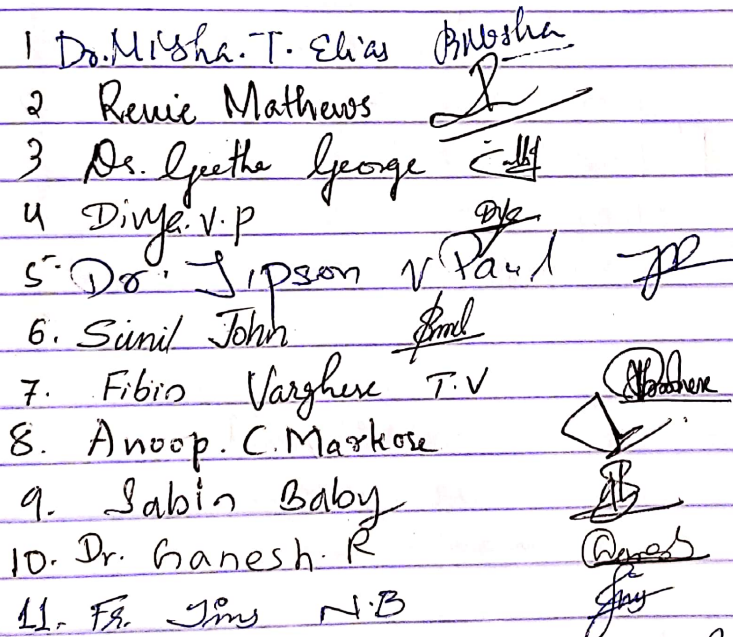 1 Dr. Misha. T. Elias
2 Renie Mathews
3 Dr. Geetha George
4 Divya. V. P
5. Dr. Jipson V Paul
6. Sunil John
7. Fibin Varghese T.V
8. Anoop. C. Markose
9. Sabin Baby
10. Dr. Ganesh. R
11. Fr. Jins N.B